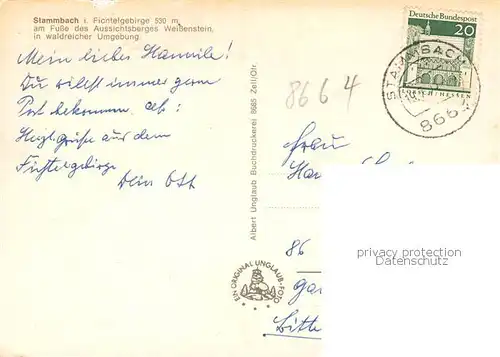 Stammbach i. Fichtelgebirge 530 m,
am Fuße des Aussichtsberges Weißenstein,
in waldreicher Umgebung
Mein liebes Hannile!
Du willst immer gern
Post bekommen
Herzl. Grüße aus dem
Fichtelgebirge
Dein Ott
8664
Albert Unglaub Buchdruckerei 8665 Zell/Ofr.
EIN ORIGINAL UNGLAUB-FOTO
Deutsche Bundespost
20
LORSCH/HESSEN
STAMMBACH
8664
Frau
86
Bitte
privacy protection
Datenschutz